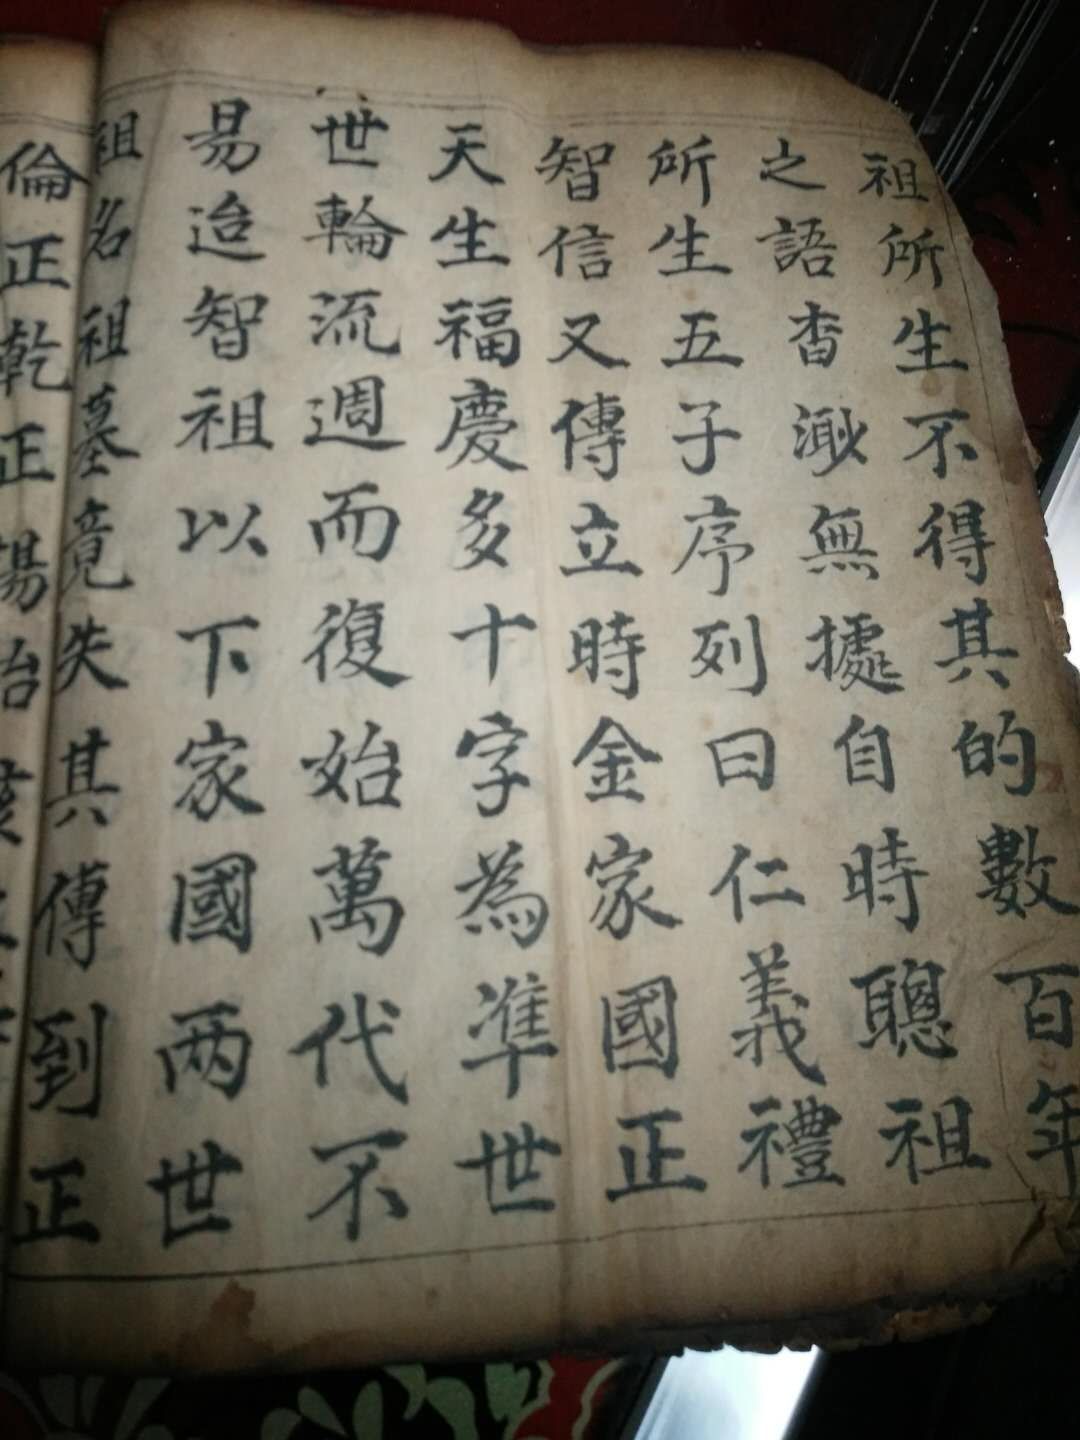 祖所生不得其的數百年
之語杳渺無據自時聰祖
所生五子序列曰仁義禮
智信又傳立時金家國正
天生福慶多十字為準世
世輪流週而復始萬代不
易迨智祖以下家國两世
祖名祖墓竟失其傳到正
倫正乾正揚治